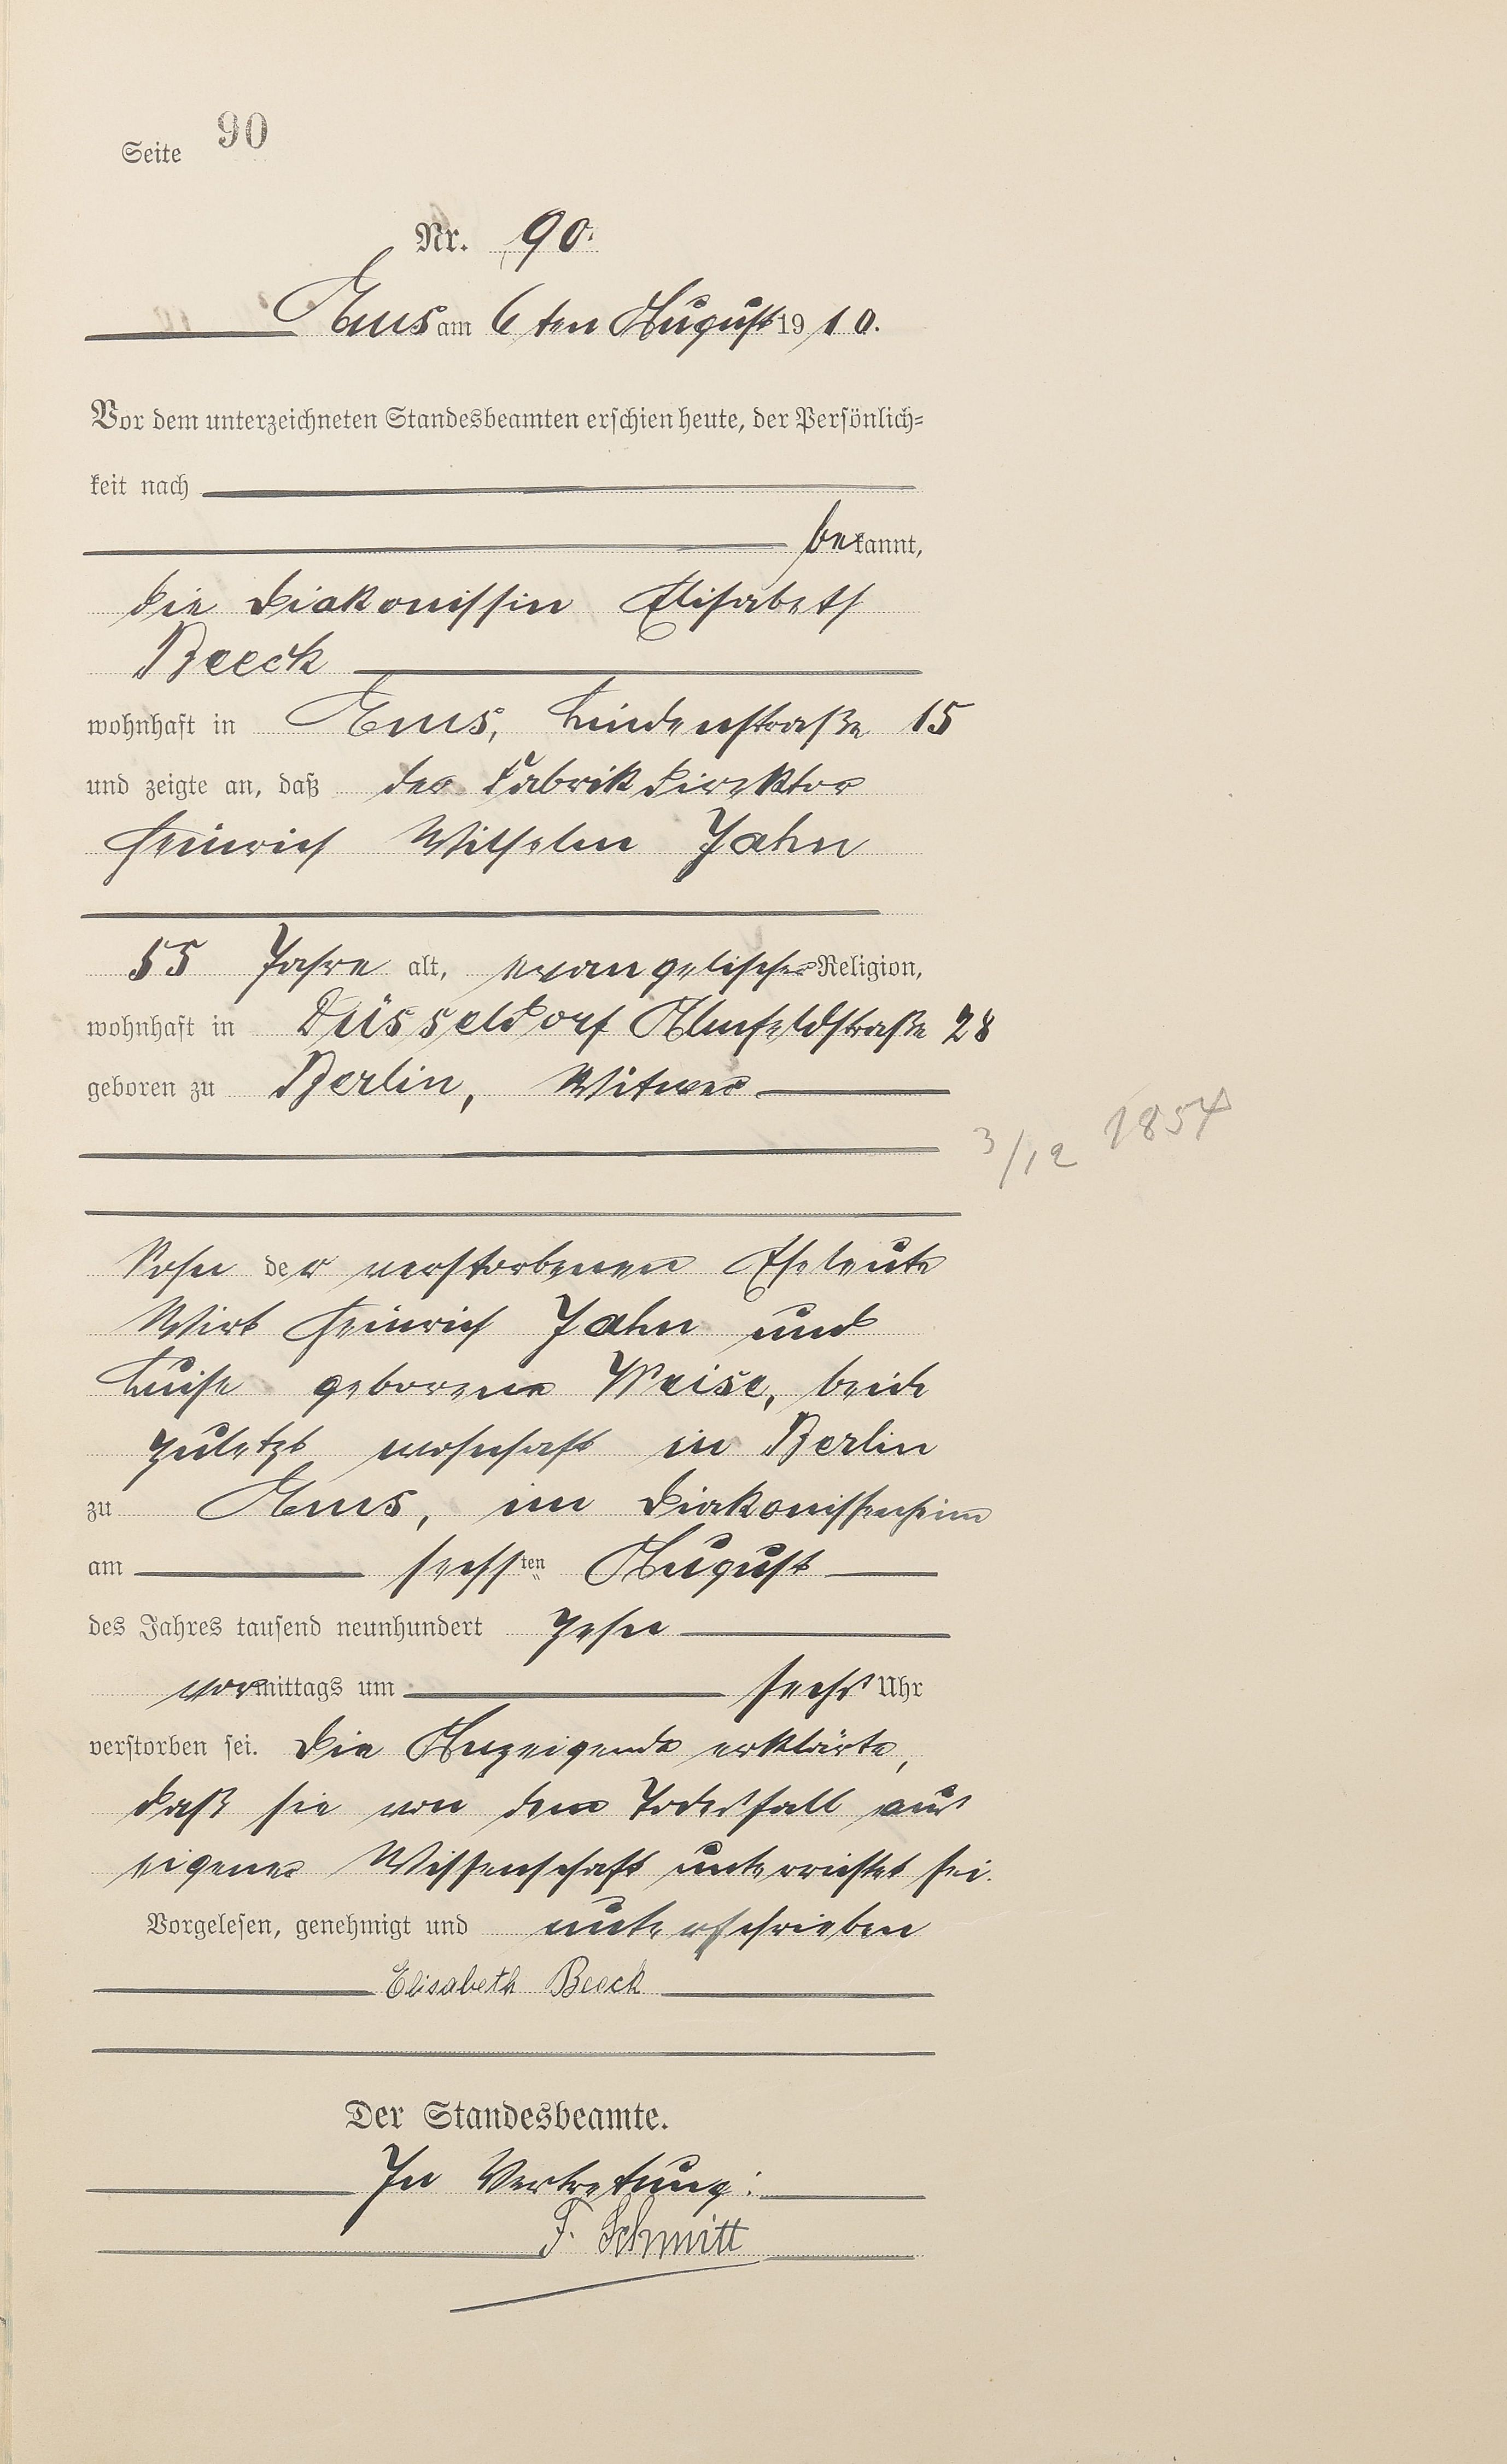 Seite 90
Nr. 90.
Ems am 6ten August 1910.
Vor dem unterzeichneten Standesbeamten erschien heute, der Persönlich-
keit nach
bekannt,
die Diakonissin Elisabeth
Beeck
wohnhaft in Ems, Lindenstraße 15
und zeigte an, daß der Fabrikdirektor
Heinrich Wilhelm Jahn
55 Jahre alt, evangelischer Religion,
wohnhaft in Düsseldorf Ahnfeldstraße 28
geboren zu Berlin, Witwer
3/12 1854
Sohn der verstorbenen Eheleute
Wirt Heinrich Jahn und
Luise geborene Weise, beide
zuletzt wohnhaft in Berlin
zu Ems, im Diakonissenheim
am sechsten August
des Jahres tausend neunhundert zehn
vormittags um sechs Uhr
verstorben sei. Die Anzeigende erklärte,
daß sie von dem Todesfall aus
eigener Wissenschaft unterrichtet sei.
Vorgelesen, genehmigt und unterschrieben
Elisabeth Beeck
Der Standesbeamte.
In Vertretung:
F. Schmitt